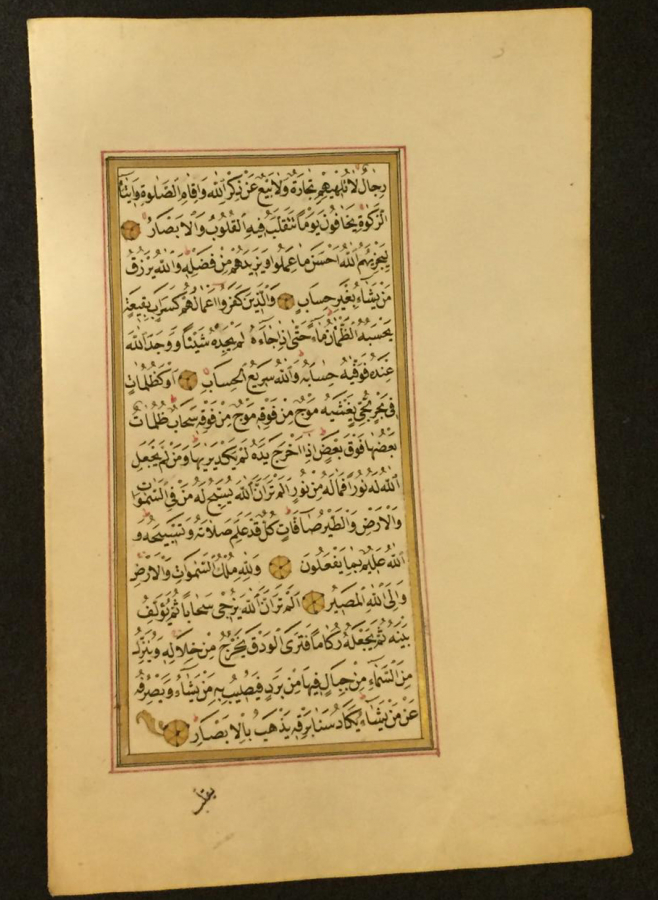 رِجَالٌ لَا تُلْهِيهِمْ تِجَارَةٌ وَلَا بَيْعٌ عَنْ ذِكْرِ اللّٰهِ وَاِقَامِ الصَّلٰوةِ وَاِيتَاءِ
الزَّكٰوةِ يَخَافُونَ يَوْمًا تَتَقَلَّبُ فِيهِ الْقُلُوبُ وَالْاَبْصَارُ
لِيَجْزِيَهُمُ اللّٰهُ اَحْسَنَ مَا عَمِلُوا وَيَزِيدَهُمْ مِنْ فَضْلِهِ وَاللّٰهُ يَرْزُقُ
مَنْ يَشَاءُ بِغَيْرِ حِسَابٍ وَالَّذِينَ كَفَرُوا اَعْمَالُهُمْ كَسَرَابٍ بِقِيعَةٍ
يَحْسَبُهُ الظَّمْاٰنُ مَاءً حَتّٰى اِذَا جَاءَهُ لَمْ يَجِدْهُ شَيْئًا وَوَجَدَ اللّٰهَ
عِنْدَهُ فَوَفّٰيهُ حِسَابَهُ وَاللّٰهُ سَرِيعُ الْحِسَابِ اَوْ كَظُلُمَاتٍ
فِى بَحْرٍ لُجِّىٍّ يَغْشٰيهُ مَوْجٌ مِنْ فَوْقِهِ مَوْجٌ مِنْ فَوْقِهِ سَحَابٌ ظُلُمَاتٌ
بَعْضُهَا فَوْقَ بَعْضٍ اِذَا اَخْرَجَ يَدَهُ لَمْ يَكَدْ يَرٰيهَا وَمَنْ لَمْ يَجْعَلِ
اللّٰهُ لَهُ نُورًا فَمَا لَهُ مِنْ نُورٍ اَلَمْ تَرَ اَنَّ اللّٰهَ يُسَبِّحُ لَهُ مَنْ فِى السَّمٰوَاتِ
وَالْاَرْضِ وَالطَّيْرُ صَافَّاتٍ كُلٌّ قَدْ عَلِمَ صَلَاتَهُ وَتَسْبِيحَهُ وَ
اللّٰهُ عَلِيمٌ بِمَا يَفْعَلُونَ وَلِلّٰهِ مُلْكُ السَّمٰوَاتِ وَالْاَرْضِ
وَاِلَى اللّٰهِ الْمَصِيرُ اَلَمْ تَرَ اَنَّ اللّٰهَ يُزْجِى سَحَابًا ثُمَّ يُؤَلِّفُ
بَيْنَهُ ثُمَّ يَجْعَلُهُ رُكَامًا فَتَرَى الْوَدْقَ يَخْرُجُ مِنْ خِلَالِهِ وَيُنَزِّلُ
مِنَ السَّمَاءِ مِنْ جِبَالٍ فِيهَا مِنْ بَرَدٍ فَيُصِيبُ بِهِ مَنْ يَشَاءُ وَيَصْرِفُهُ
عَنْ مَنْ يَشَاءُ يَكَادُ سَنَا بَرْقِهِ يَذْهَبُ بِالْاَبْصَارِ
يقلب